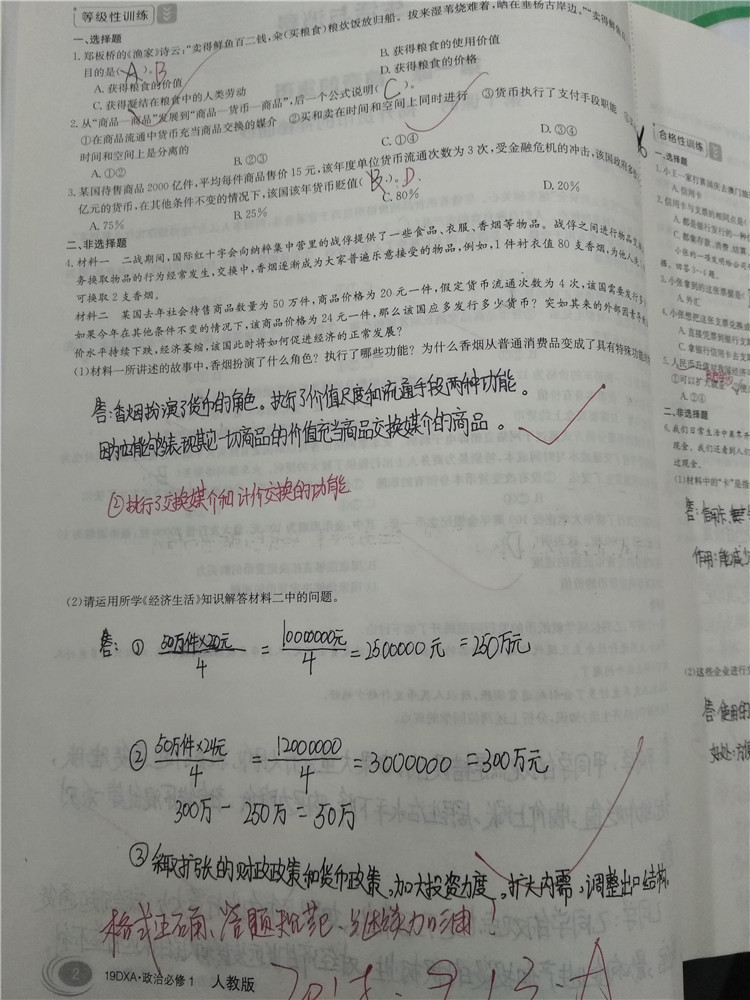 等级性训练
一、选择题
1.郑板桥的《渔家》诗云:“卖得鲜鱼百二钱,籴(买粮食)粮炊饭放归船。拔来湿苇烧难着,晒在垂杨古岸边。”“卖得鲜鱼
目的是( A )。B
A.获得粮食的价值
B.获得粮食的使用价值
C.获得凝结在粮食中的人类劳动
D.获得粮食的价格
2.从“商品—商品”发展到“商品—货币—商品”,后一个公式说明( C )。
①在商品流通中货币充当商品交换的媒介 ②买和卖在时间和空间上同时进行 ③货币执行了支付手段职能
时间和空间上是分离的
A.①② B.②③ C.①④ D.③④
3.某国待售商品2000亿件,平均每件商品售价15元,该年度单位货币流通次数为3次,受金融危机的冲击,该国政府
亿元的货币,在其他条件不变的情况下,该国该年货币贬值( B )。D.
A.75% B.25% C.80% D.20%
二、非选择题
4.材料一 二战期间,国际红十字会向纳粹集中营里的战俘提供了一些食品、衣服、香烟等物品。战俘之间进行物品
务换取物品的行为经常发生,交换中,香烟逐渐成为大家普遍乐意接受的物品,例如,1件衬衣值80支香烟,为他人
可换取2支香烟。
材料二 某国去年社会待售商品数量为50万件,商品价格为20元一件,假定货币流通次数为4次,该国需要发行
如果今年在其他条件不变的情况下,该商品价格为24元一件,那么该国应多发行多少货币?突如其来的外部因素
价水平持续下跌,经济萎缩,该国此时将如何促进经济的正常发展?
(1)材料一所讲述的故事中,香烟扮演了什么角色?执行了哪些功能?为什么香烟从普通消费品变成了具有特殊功能
答:香烟扮演了货币的角色。执行了价值尺度和流通手段两种功能。
因为它能够表现其它一切商品的价值充当商品交换媒介的商品。
②执行了交换媒介和计价交换的功能
(2)请运用所学《经济生活》知识解答材料二中的问题。
答:① 50万件×20元/4 = 10000000元/4 = 2500000元 = 250万元
② 50万件×24元/4 = 12000000/4 = 3000000 = 300万元
300万 - 250万 = 50万
③采取扩张的财政政策和货币政策,加大投资力度,扩大内需,调整出口结构
格式正确、答题规范、继续加油!
2 19DXA·政治必修1 人教版
合格性训练
一、选择题
1.小王一家打算国庆去澳门
A.信用卡
2.信用卡与支票的相同点是
A.都是银行发行的一种
C.都集存款、消费、结算
小张的一项发明给公司
播。回答3~4题。
3.小张拿到的这张票据是
A.外汇
4.小张想把这张支票兑换成
A.直接凭票到银行支取
C.拿银行信用卡去支
A.②④
二、非选择题
6.我们日常生活中离不开
现金。我们还看到人们
过现金。
(1)材料中的“卡”是指
答:信用卡
作用:能减少
(2)这些企业进行
答:使用的
好处:方便